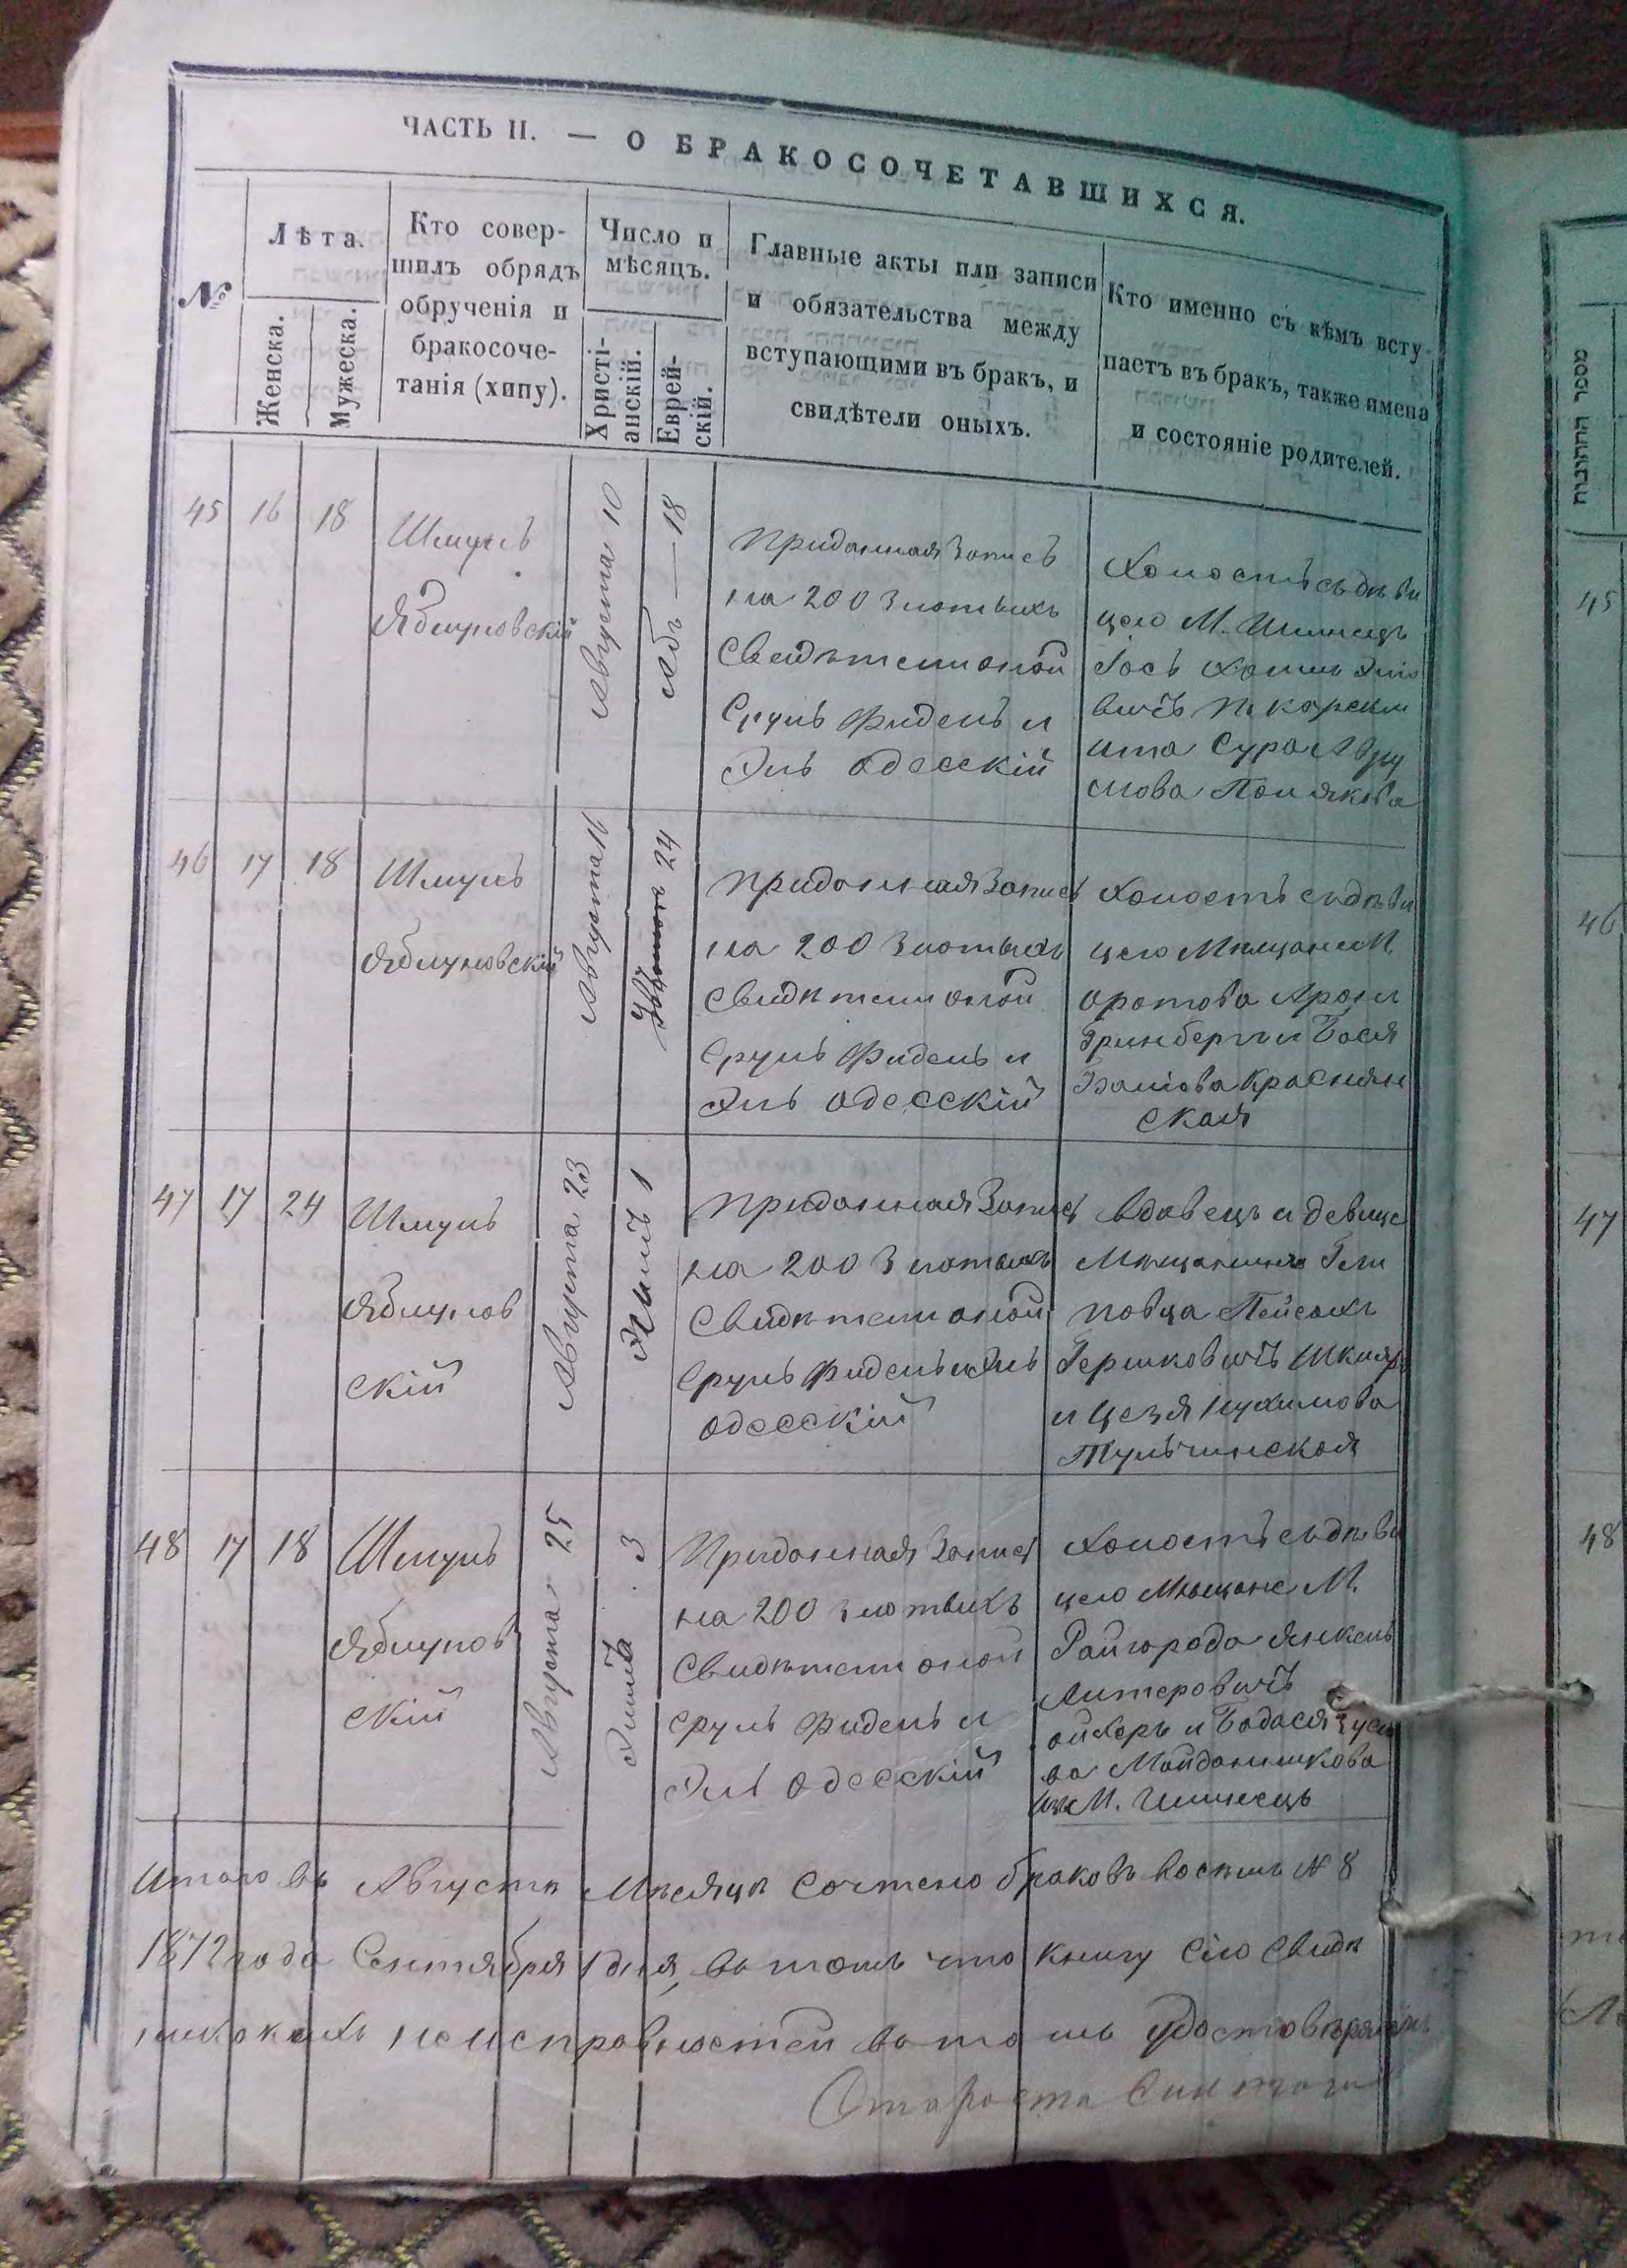 ЧАСТЬ II. — О БРАКОСОЧЕТАВШИХСЯ.
№
Лѣта.
Женска.
Мужеска.
Кто совер-
шилъ обрядъ
обрученія и
бракосоче-
танія (хипу).
Число и
мѣсяцъ.
Христі-
анскій.
Еврей-
скій.
Главные акты или записи
и обязательства между
вступающими въ бракъ, и
свидѣтели оныхъ.
Кто именно съ кѣмъ всту-
паетъ въ бракъ, также имена
и состояніе родителей.
45 16 18
Шмуль
Яблуновскій
Августа 10
Абъ — 18
Приданная Запись
на 200 Злотыхъ
Свидѣтели оной
Сруль Фидель и
Эль Одесскій
Холостъ съ дѣви
цею М. Шпинецъ
вичъ
Сура Авру
мова Полякова
46 17 18
Шмуль
Яблуновскій
Августа 16
24
Приданная Запись
на 200 Злотыхъ
Свидѣтели оной
Сруль Фидель и
Эль Одесскій
Холостъ съ дѣви
цею Мѣщане М.
Оратова Арон
Гринбергъ и Бася
Краснян
ская
47 17 24
Шмуль
Яблунов
скій
Августа 23
Элилъ 1
Приданная Запись
на 200 Злотыхъ
Свидѣтели оной
Сруль Фидель и Эль
Одесскій
Вдовецъ и девице
Мѣщанинъ Гели
повца Пейсахъ
Гершковичъ Шкляръ
и Цезя Нухимова
Тульчинская
48 17 18
Шмуль
Яблунов
скій
Августа 25
Элила 3
Приданная Запись
на 200 Злотыхъ
Свидѣтели оной
Сруль Фидель и
Эль Одесскій
Холостъ съ дѣви
цею Мѣщане М.
Райгорода Янкель
Литеровичъ
и Бадася
ва Майданникова
М. Шпинецъ
Итого въ Августѣ Мѣсяцѣ Сочтено браковъ восѣмь № 8
1872 года Сентября 1 дня, въ томъ что книгу сію Свидѣ
никакихъ неисправностей въ томъ удостовѣряемъ
Староста
מספר החתונות
45
46
47
48